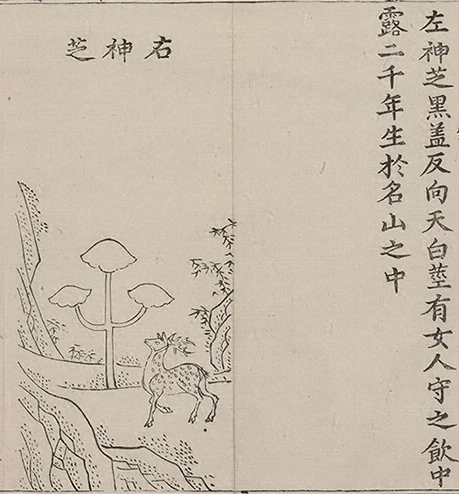 左神芝黑盖反向天白莖有女人守之飲中
露二千年生於名山之中
右神芝